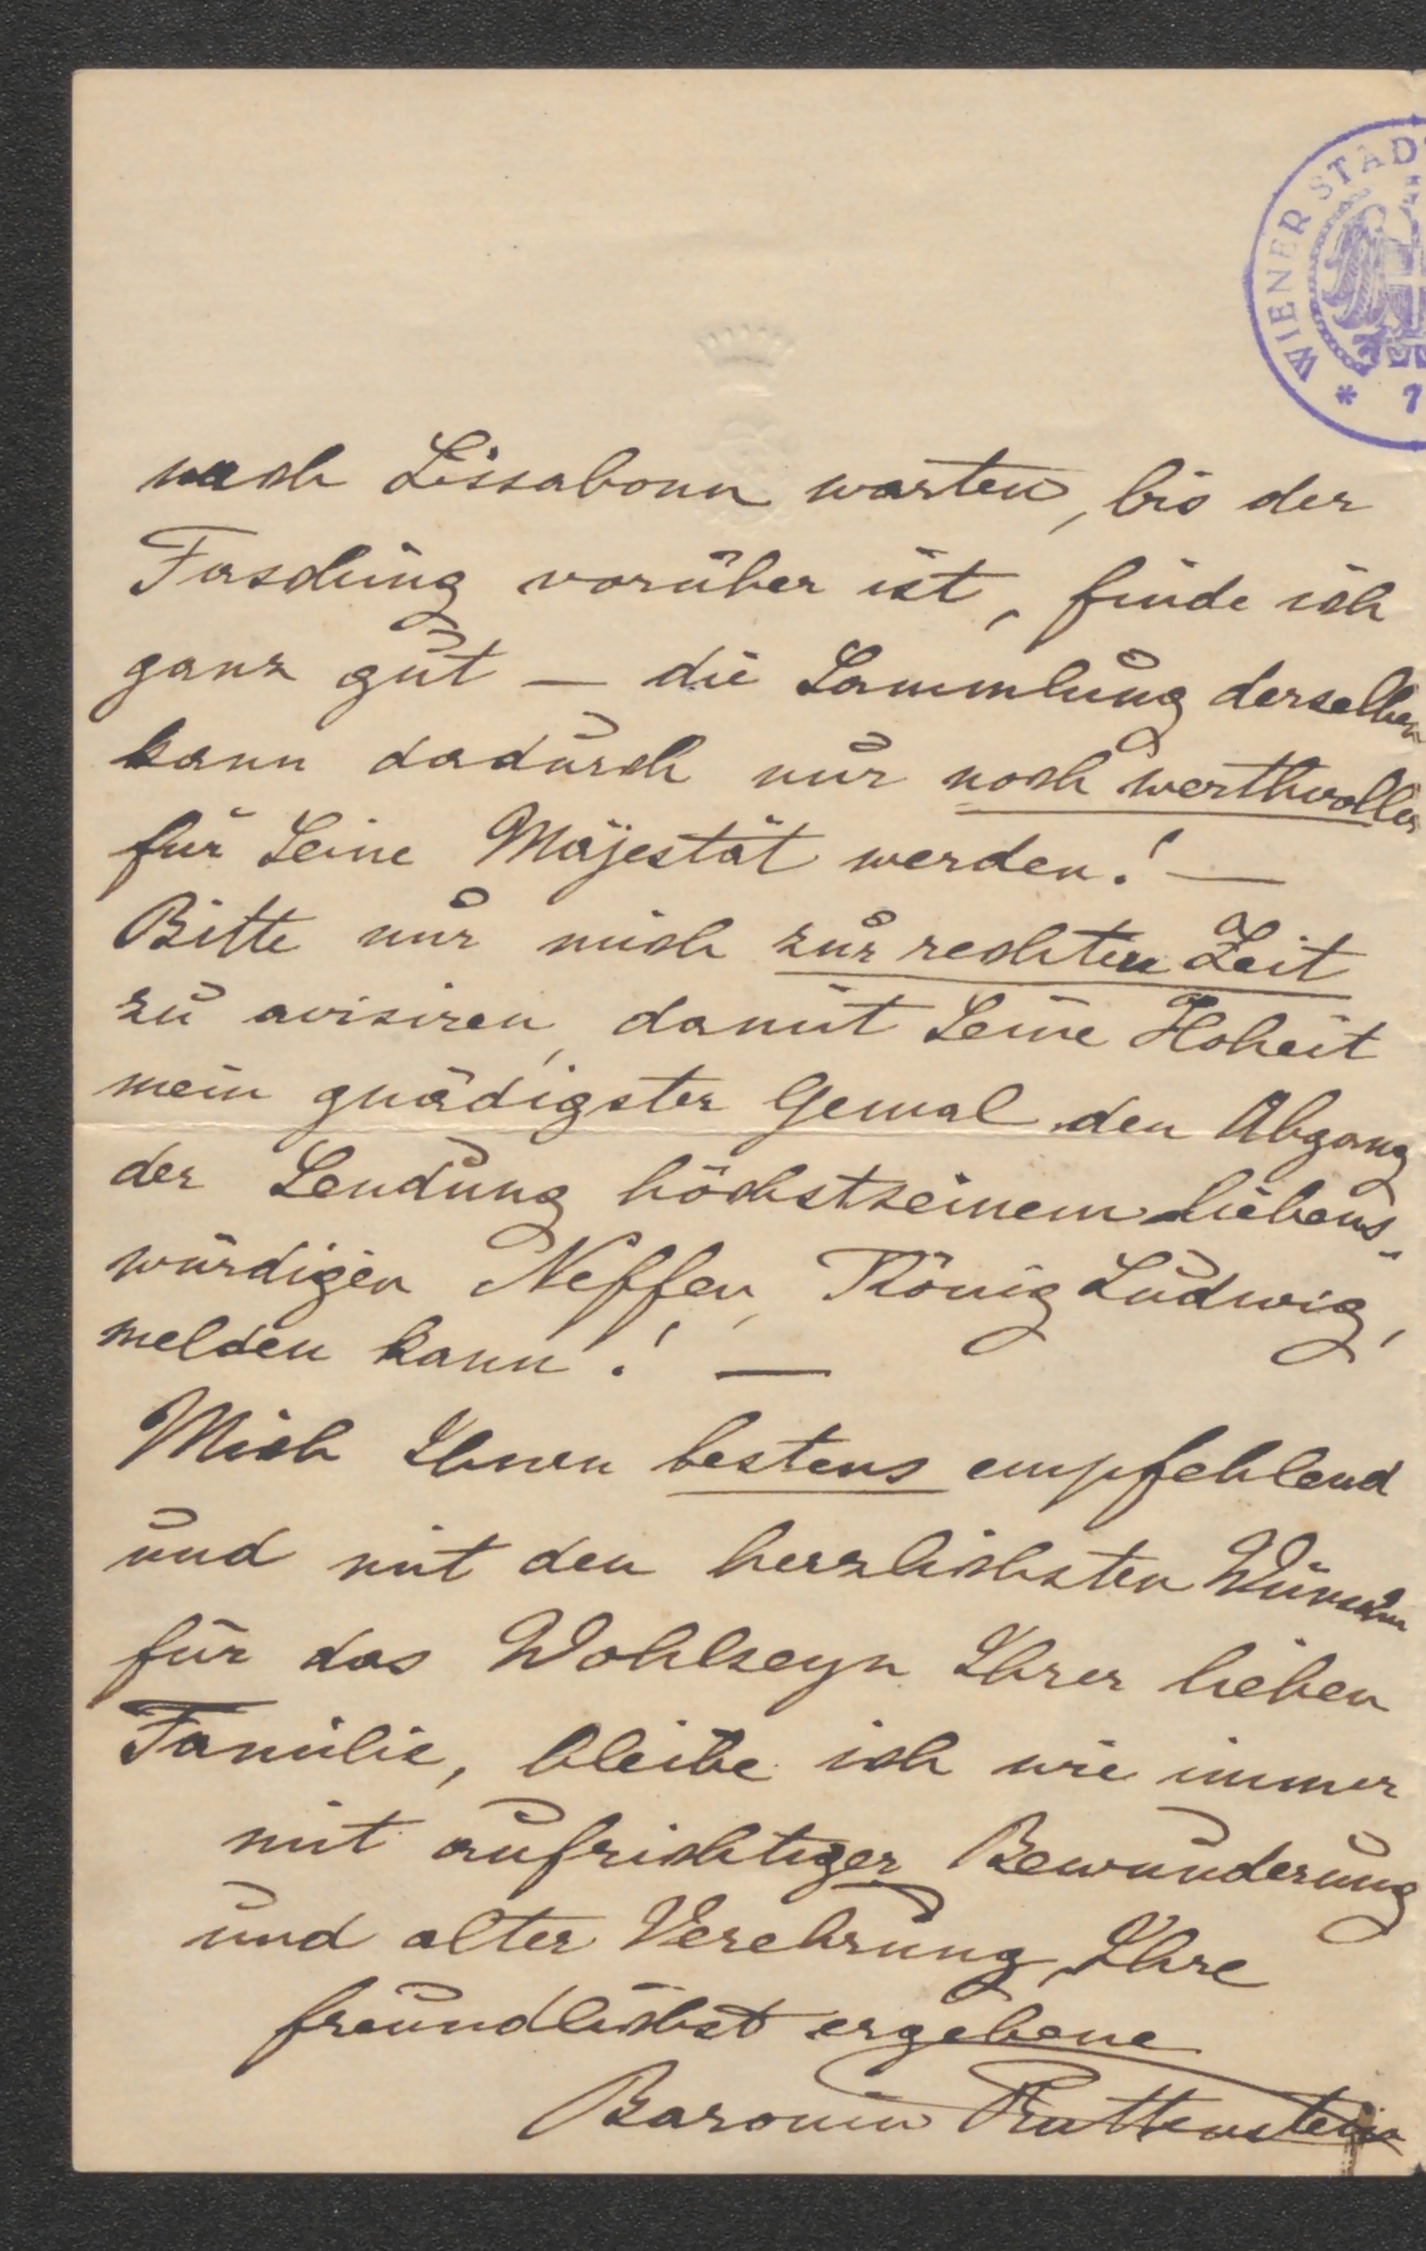 WIENER STADT
* 1
nach Lissabonn warten, bis der
Fasching vorüber ist, finde ich
ganz gut — die Sammlung derselben
kann dadurch nur noch werthvoller
für Seine Majestät werden! —
Bitte nur mich zur rechten Zeit
zu avisiren, damit Seine Hoheit
mein gnädigster Gemal den Abgang
der Sendung höchstseinem liebens-
würdigen Neffen, König Ludwig,
melden kann! —
Mich Ihnen bestens empfehlend
und mit den herzlichsten Wünschen
für das Wohlseyn Ihrer lieben
Familie, bleibe ich wie immer
mit aufrichtiger Bewunderung
und alter Verehrung Ihre
freundlichst ergebene
Baronin Ruttenstein